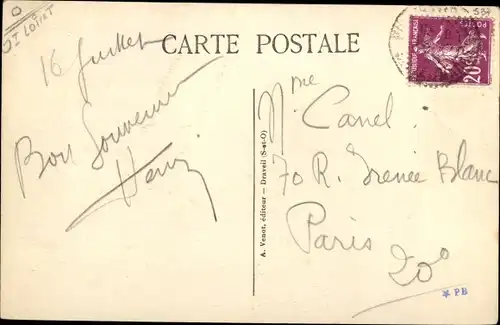 CARTE POSTALE
16 Juillet
Bon Souvenir
Henri
A. Venot, éditeur - Draveil (S-et-O)
Mme Canel
70 R. Irénée Blanc
Paris
20e
POSTES
REPUBLIQUE FRANÇAISE
20c
* PB